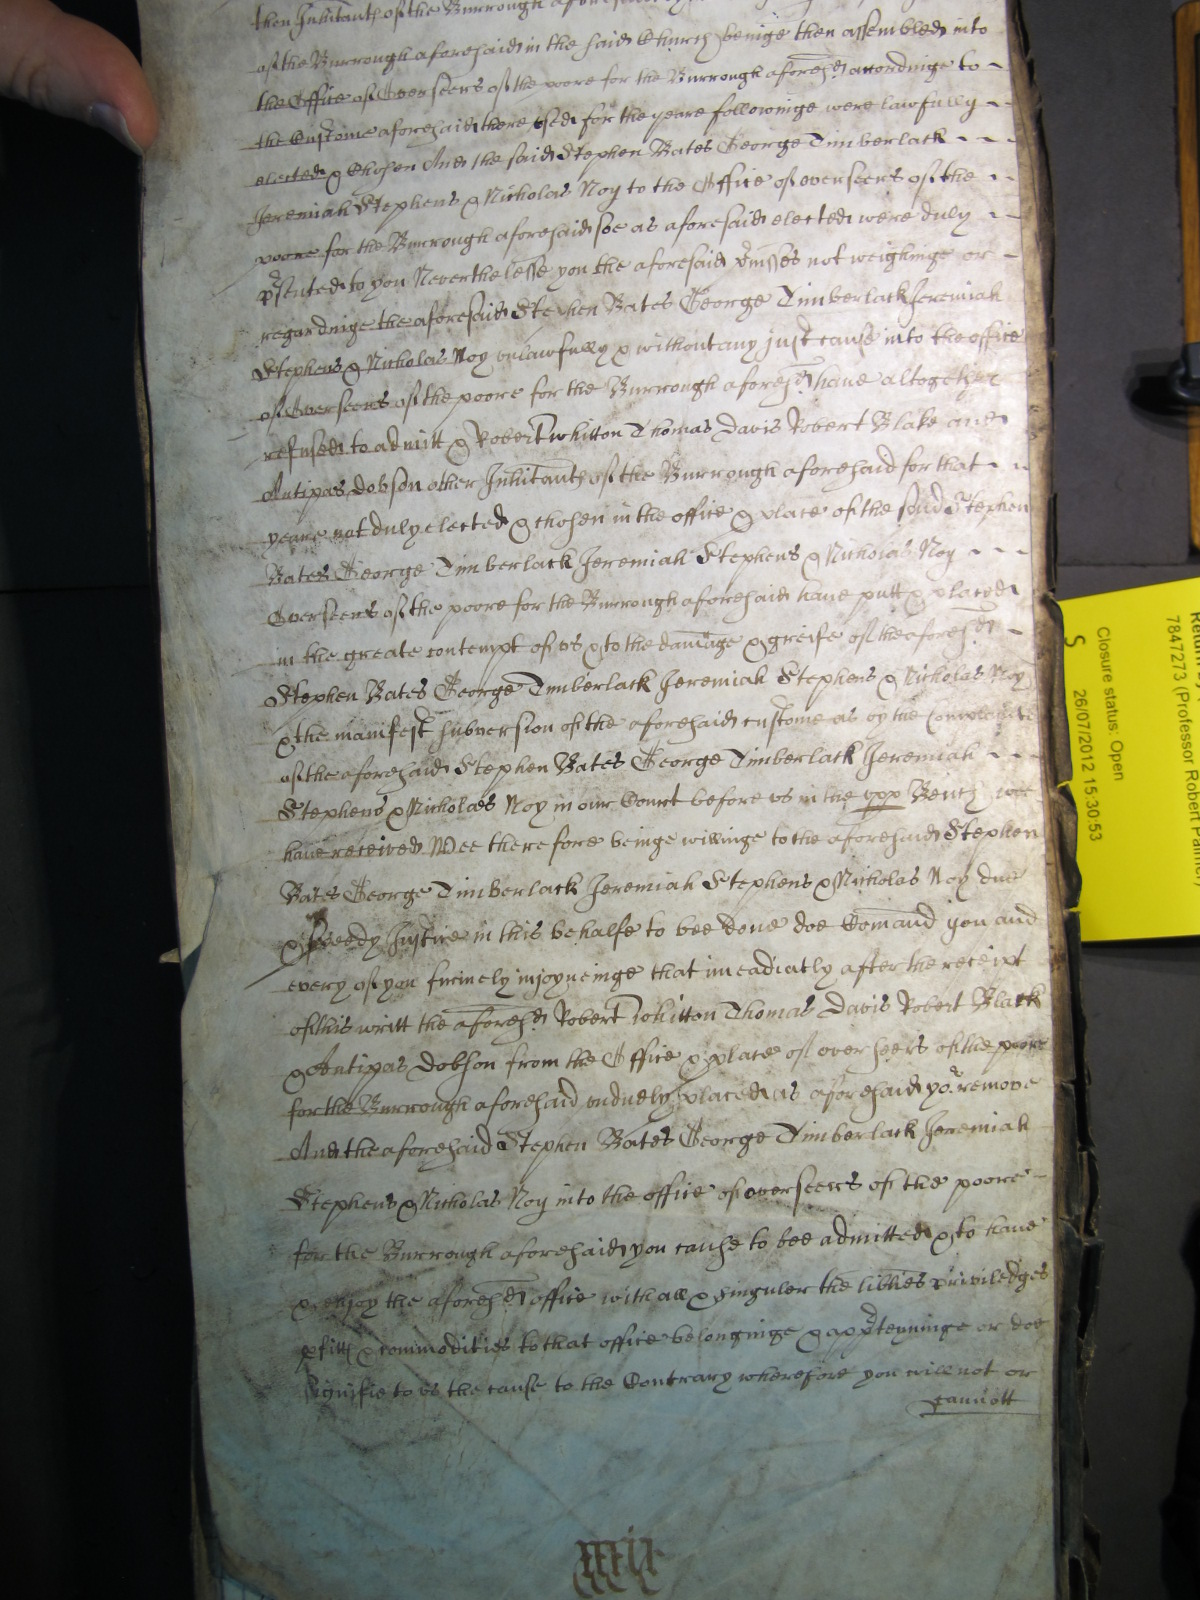 then Inhitants of the Burrough aforesaid
of the Burrough aforesaid in the said Church beinge then assembled into
the Office of Overseers of the poore for the Burrough aforesd accordinge to
the Custome aforesaid there used for the yeare followinge were lawfully
elected & Chosen And the said Stephen Bates George Timberlack
Jeremiah Stephens & Nicholas Noy to the Office of overseers of the
poore for the Burrough aforesaid soe as aforesaid elected were duly
psented to you Neverthelesse you the aforesaid pmisses not weighinge or
regardinge the aforesaid Stephen Bates George Timberlack Jeremiah
Stephens & Nicholas Noy unlawfully & without any just cause into the office
of Overseers of the poore for the Burrough aforesd have altogether
refused to admitt & Robert Whitton Thomas Davis Robert Blake and
Antipas Dobson other Inhitants of the Burrough aforesaid for that
yeare not duly elected & chosen in the office & place of the said Stephen
Bates George Timberlack Jeremiah Stephens & Nicholas Noy
Overseers of the poore for the Burrough aforesaid have putt & placed
in the greate contempt of us & to the damage & greife of the aforesd
Stephen Bates George Timberlack Jeremiah Stephens & Nicholas Noy
& the manifest subversion of the aforesaid custome as by the Complainte
of the aforesaid Stephen Bates George Timberlack Jeremiah
Stephens & Nicholas Noy in our Court before us in the upp Bench wee
have received Wee therefore beinge willinge to the aforesaid Stephen
Bates George Timberlack Jeremiah Stephens & Nicholas Noy due
& speedy Justice in this behalfe to bee done doe Comand you and
every of you firmely injoyneinge that imeadiatly after the receipt
of this writt the aforesd Robert Whitton Thomas Davis Robert Black
& Antipas Dobson from the Office & place of overseers of the poore
for the Burrough aforesaid unduely placed as aforesaid yo remove
And the aforesaid Stephen Bates George Timberlack Jeremiah
Stephens & Nicholas Noy into the office of overseers of the poore
for the Burrough aforesaid you cause to bee admitted & to have
& enjoy the aforesd office with all & singuler the libties priviledges
pfitts & commodities to that office belonginge & apptenninge or doe
signifie to us the cause to the Contrary wherefore you will not or
cannott
Closure status: Open
26/07/2012 15:30:53
S
7847273 (Professor Robert Palmer)